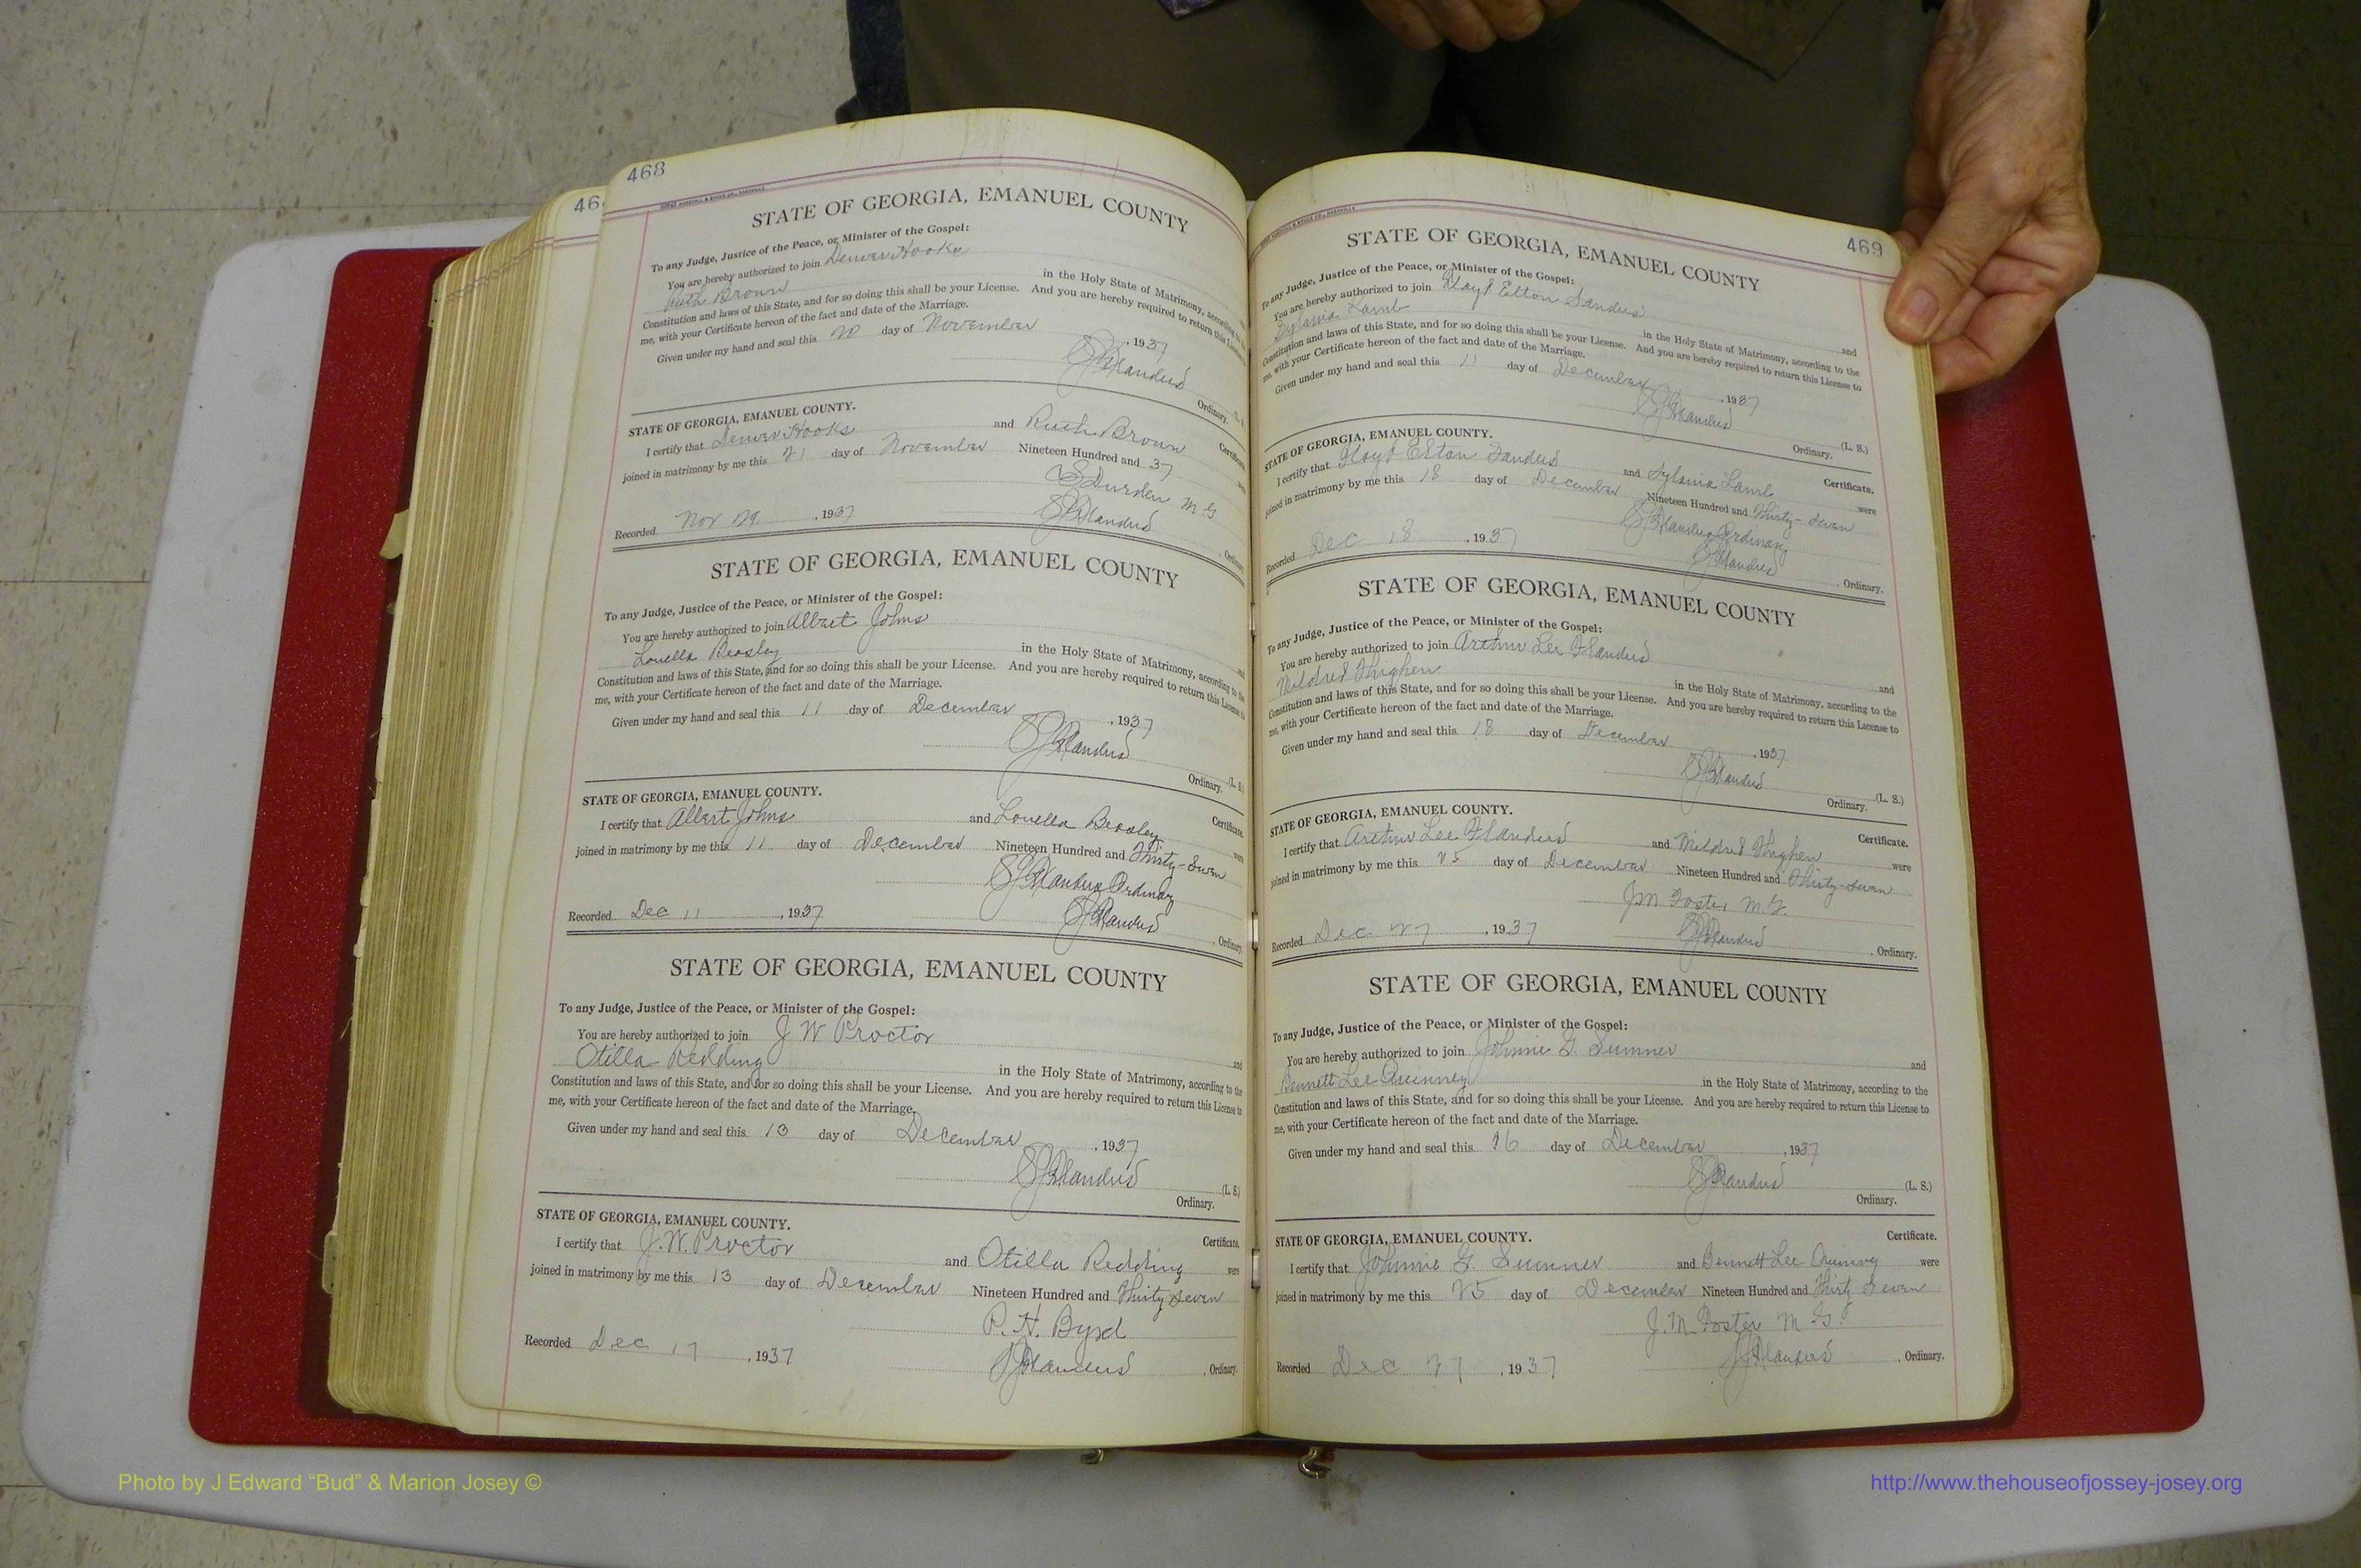 468
STATE OF GEORGIA, EMANUEL COUNTY
To any Judge, Justice of the Peace, or Minister of the Gospel:
You are hereby authorized to join Denver Hooks
Ruth Brown in the Holy State of Matrimony, according to the
Constitution and laws of this State, and for so doing this shall be your License. And you are hereby required to return this License
me, with your Certificate hereon of the fact and date of the Marriage.
Given under my hand and seal this 20 day of November, 1937
Ordinary. (L. S.)
STATE OF GEORGIA, EMANUEL COUNTY. Certificate.
I certify that Denver Hooks and Ruth Brown
joined in matrimony by me this 21 day of November Nineteen Hundred and 37
Durden M G
Recorded Nov 29, 1937 Ordinary
STATE OF GEORGIA, EMANUEL COUNTY
To any Judge, Justice of the Peace, or Minister of the Gospel:
You are hereby authorized to join Albert Johns and
Louella Beasley in the Holy State of Matrimony, according to the
Constitution and laws of this State, and for so doing this shall be your License. And you are hereby required to return this License to
me, with your Certificate hereon of the fact and date of the Marriage.
Given under my hand and seal this 11 day of December, 1937
Ordinary. (L. S.)
STATE OF GEORGIA, EMANUEL COUNTY. Certificate.
I certify that Albert Johns and Louella Beasley were
joined in matrimony by me this 11 day of December Nineteen Hundred and Thirty-Seven
Flanders Ordinary
Recorded Dec 11, 1937 Flanders, Ordinary.
STATE OF GEORGIA, EMANUEL COUNTY
To any Judge, Justice of the Peace, or Minister of the Gospel:
You are hereby authorized to join J W Proctor and
Otilla Redding in the Holy State of Matrimony, according to the
Constitution and laws of this State, and for so doing this shall be your License. And you are hereby required to return this License to
me, with your Certificate hereon of the fact and date of the Marriage.
Given under my hand and seal this 13 day of December, 1937
Flanders (L. S.)
Ordinary.
STATE OF GEORGIA, EMANUEL COUNTY. Certificate.
I certify that J. W. Proctor and Otilla Redding were
joined in matrimony by me this 13 day of December Nineteen Hundred and Thirty Seven
R. H. Byrd
Recorded Dec 17, 1937 Flanders, Ordinary.
469
STATE OF GEORGIA, EMANUEL COUNTY
To any Judge, Justice of the Peace, or Minister of the Gospel:
You are hereby authorized to join Floyd Elton Sanders and
Sylania Lamb in the Holy State of Matrimony, according to the
Constitution and laws of this State, and for so doing this shall be your License. And you are hereby required to return this License to
me, with your Certificate hereon of the fact and date of the Marriage.
Given under my hand and seal this 11 day of December, 1937
Flanders (L. S.)
Ordinary.
STATE OF GEORGIA, EMANUEL COUNTY. Certificate.
I certify that Floyd Elton Sanders and Sylania Lamb were
joined in matrimony by me this 18 day of December Nineteen Hundred and Thirty-Seven
Flanders Ordinary
Recorded Dec 18, 1937 Flanders, Ordinary.
STATE OF GEORGIA, EMANUEL COUNTY
To any Judge, Justice of the Peace, or Minister of the Gospel:
You are hereby authorized to join Arthur Lee Flanders and
Mildred Thighen in the Holy State of Matrimony, according to the
Constitution and laws of this State, and for so doing this shall be your License. And you are hereby required to return this License to
me, with your Certificate hereon of the fact and date of the Marriage.
Given under my hand and seal this 18 day of December, 1937
Flanders (L. S.)
Ordinary.
STATE OF GEORGIA, EMANUEL COUNTY. Certificate.
I certify that Arthur Lee Flanders and Mildred Thighen were
joined in matrimony by me this 25 day of December Nineteen Hundred and Thirty-Seven
J M Foster M. G.
Recorded Dec 27, 1937 Flanders, Ordinary.
STATE OF GEORGIA, EMANUEL COUNTY
To any Judge, Justice of the Peace, or Minister of the Gospel:
You are hereby authorized to join Johnnie G. Sumner and
Bennett Lee Quinney in the Holy State of Matrimony, according to the
Constitution and laws of this State, and for so doing this shall be your License. And you are hereby required to return this License to
me, with your Certificate hereon of the fact and date of the Marriage.
Given under my hand and seal this 16 day of December, 1937
Flanders (L. S.)
Ordinary.
STATE OF GEORGIA, EMANUEL COUNTY. Certificate.
I certify that Johnnie G. Sumner and Bennett Lee Quinney were
joined in matrimony by me this 25 day of December Nineteen Hundred and Thirty Seven
J. M. Foster M G.
Recorded Dec 27, 1937 Flanders, Ordinary.
Photo by J Edward “Bud” & Marion Josey ©
http://www.thehouseofjossey-josey.org